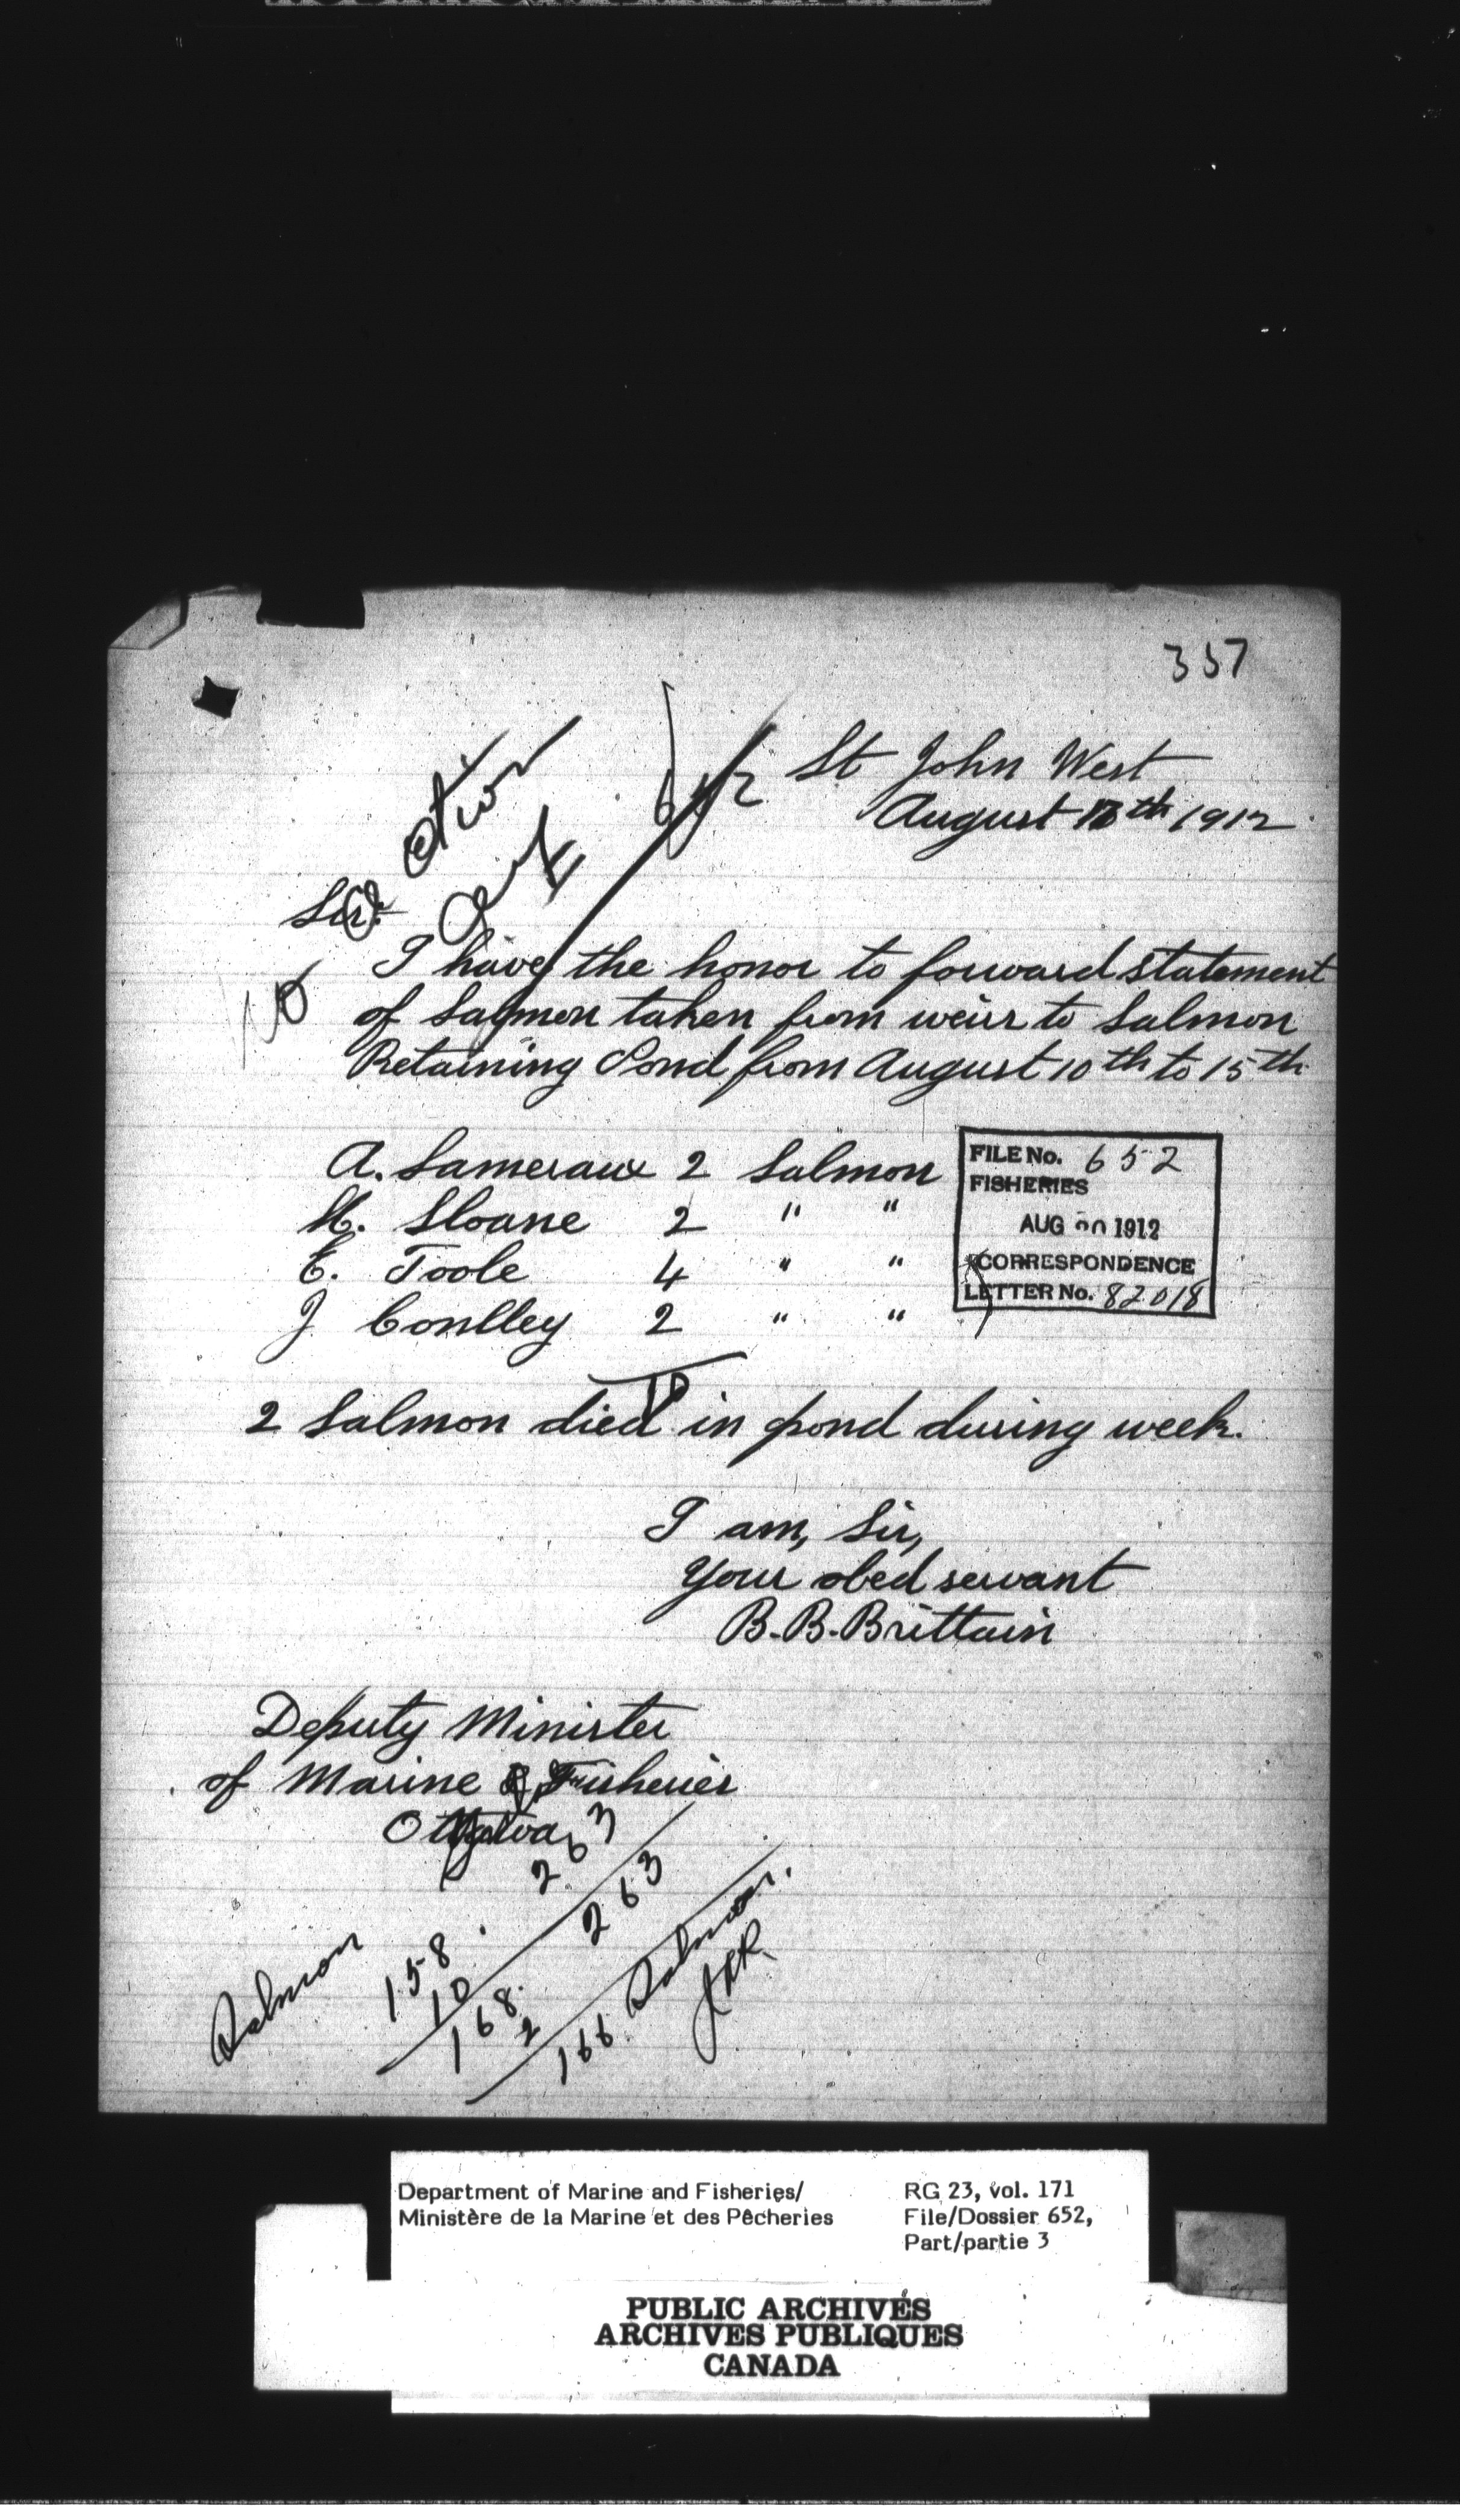 337
St John West
August th 1912
Sir:
I have the honor to forward statement
of Salmon taken from weirs to Salmon
Retaining Pond from August 10th to 15th
A. Lameraux 2 Salmon
H. Sloane 2 " "
E. Toole 4 " "
J Conlley 2 " "
10
FILE No. 652
FISHERIES
AUG 20 1912
CORRESPONDENCE
LETTER No. 82018
2 Salmon died in pond during week.
I am, Sir,
Your obed servant
B.B. Brittain
Deputy Minister
of Marine & Fisheries
Ottawa
263
263
Salmon
158
10
168
2
166 Salmon.
Department of Marine and Fisheries/
Ministère de la Marine et des Pêcheries
RG 23, vol. 171
File/Dossier 652,
Part/partie 3
PUBLIC ARCHIVES
ARCHIVES PUBLIQUES
CANADA